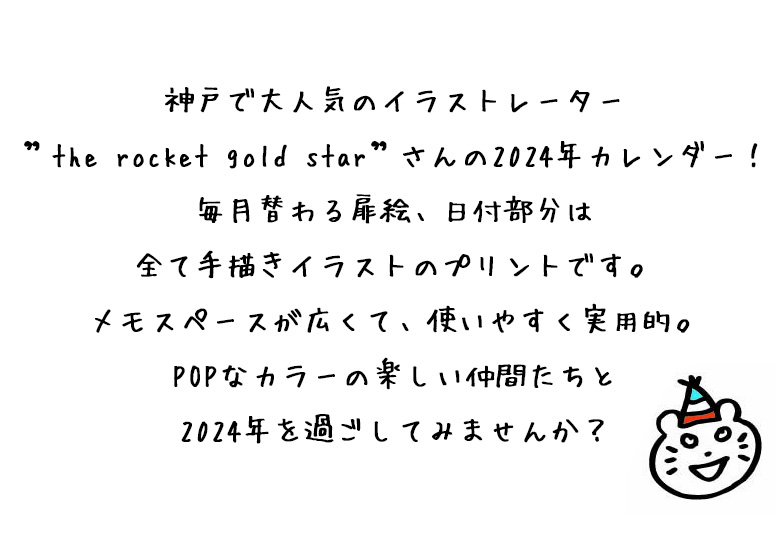 神戸で大人気のイラストレーター
”the rocket gold star”さんの2024年カレンダー！
毎月替わる扉絵、日付部分は
全て手描きイラストのプリントです。
メモスペースが広くて、使いやすく実用的。
POPなカラーの楽しい仲間たちと
2024年を過ごしてみませんか？